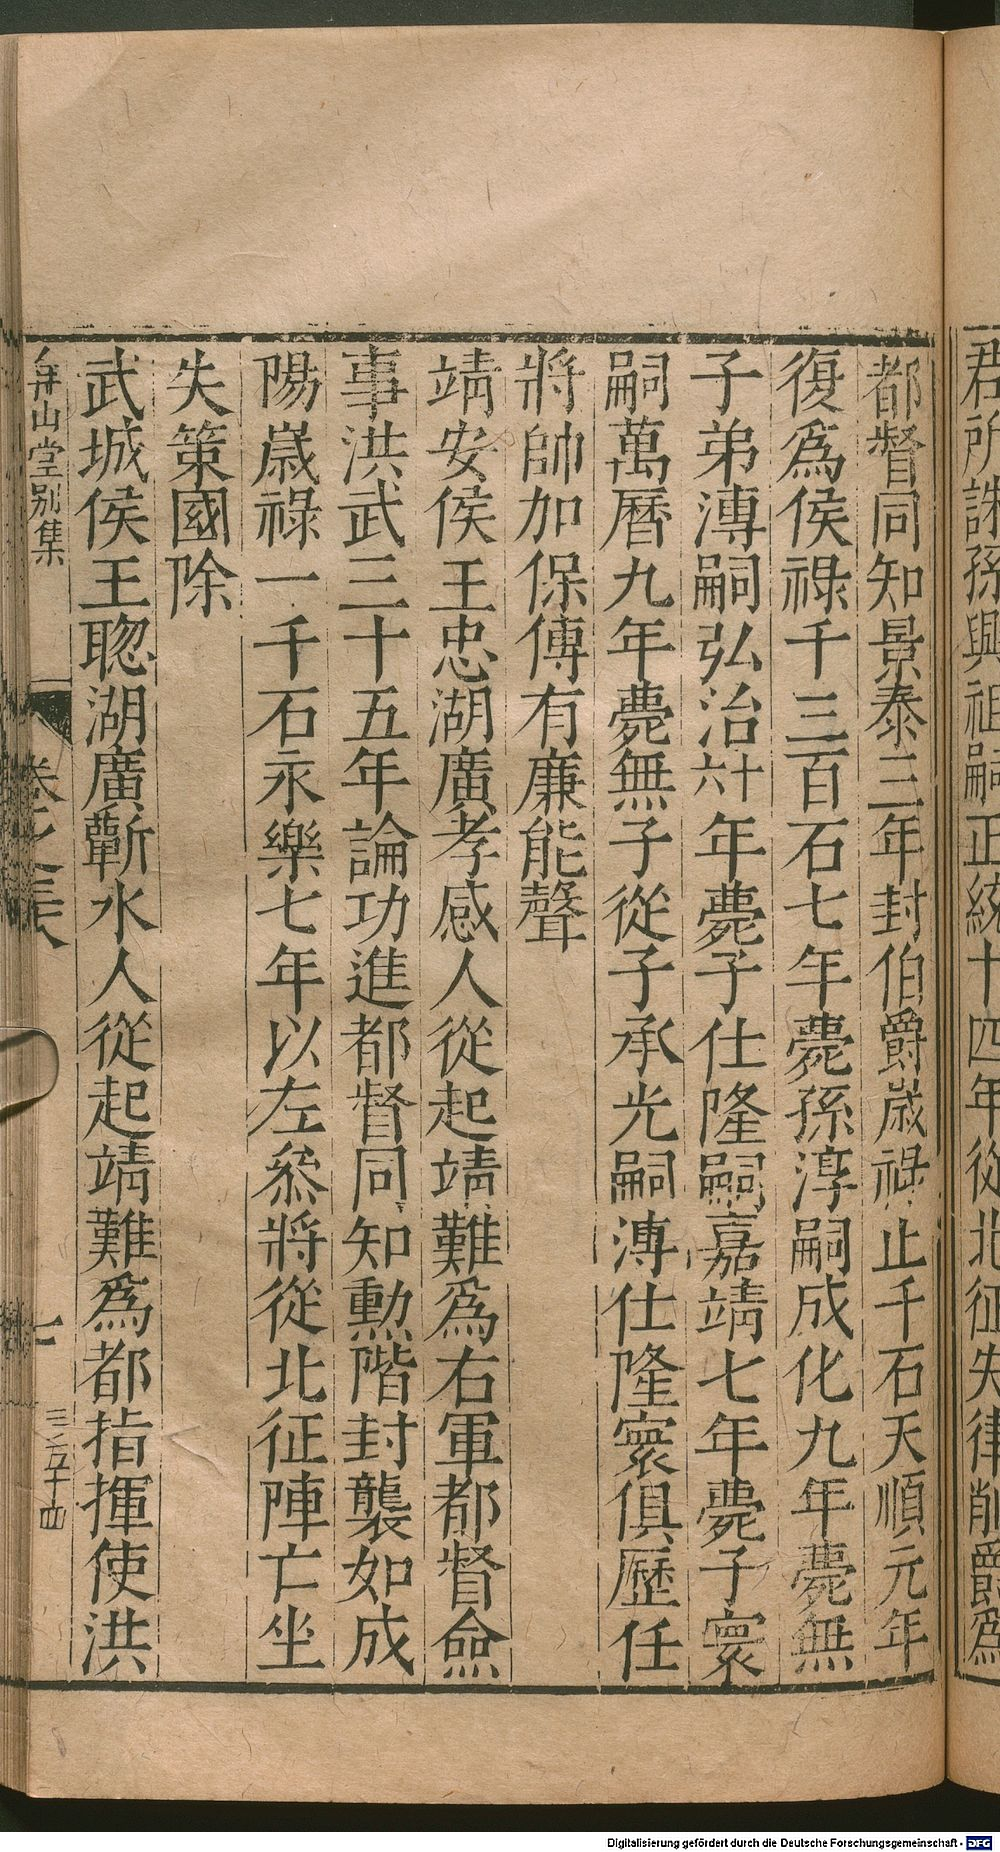 君所誅孫興祖嗣正統十四年從北征失律削爵爲
都督同知景泰三年封伯爵歲祿止千石天順元年
復爲侯祿千三百石七年薨孫淳嗣成化九年薨無
子弟漙嗣弘治六十年薨子仕隆嗣嘉靖七年薨子寰
嗣萬曆九年薨無子從子承光嗣漙仕隆寰俱歷任
將帥加保傅有廉能聲
靖安侯王忠湖廣孝感人從起靖難爲右軍都督僉
事洪武三十五年論功進都督同知勳階封襲如成
陽歲祿一千石永樂七年以左叅將從北征陣亡坐
失策國除
武城侯王聦湖廣蘄水人從起靖難爲都指揮使洪
弇山堂別集
七
三、五十四
Digitalisierung gefördert durch die Deutsche Forschungsgemeinschaft - DFG